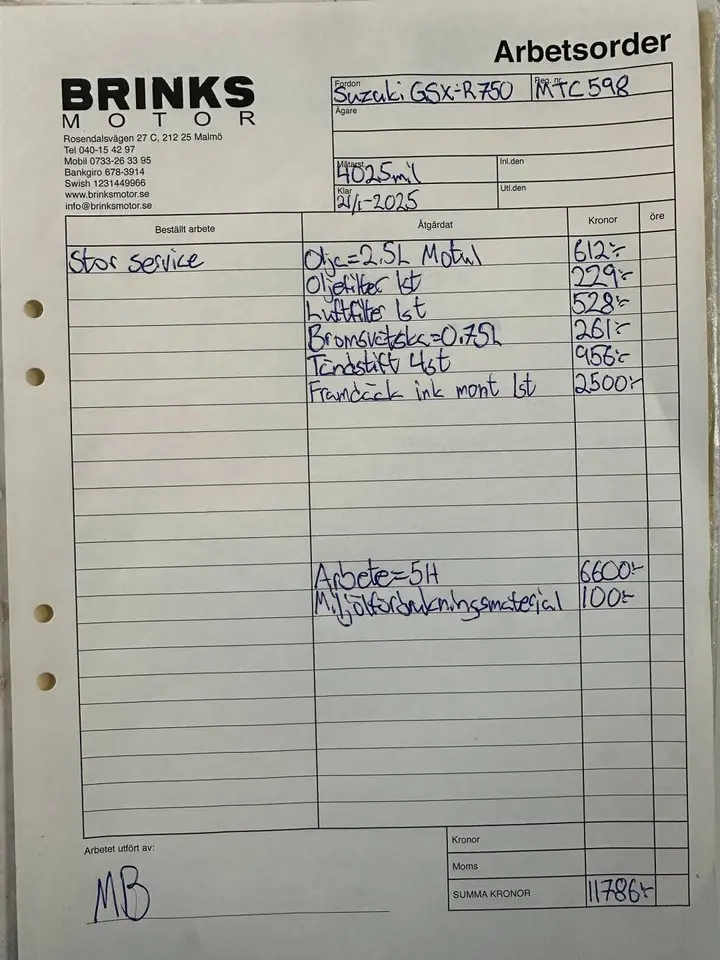 Arbetsorder
BRINKS
MOTOR
Rosendalsvägen 27 C, 212 25 Malmö
Tel 040-15 42 97
Mobil 0733-26 33 95
Bankgiro 678-3914
Swish 1231449966
www.brinksmotor.se
info@brinksmotor.se
Fordon Reg. nr.
Suzuki GSX-R750 MTC598
Ägare
Mätarst. Inl.den
4025mil
Klar Utl.den
21/1-2025
Beställt arbete Åtgärdat Kronor öre
Stor service Olja=2,5L Motul 612:-
Oljefilter 1st 229:-
Luftfilter 1st 528:-
Bromsvätska=0.75L 261:-
Tändstift 4st 956:-
Framdäck ink mont 1st 2500:-
Arbete=5H 6600:-
Miljö/förbrukningsmaterial 100:-
Arbetet utfört av:
MB
Kronor
Moms
SUMMA KRONOR 11786:-